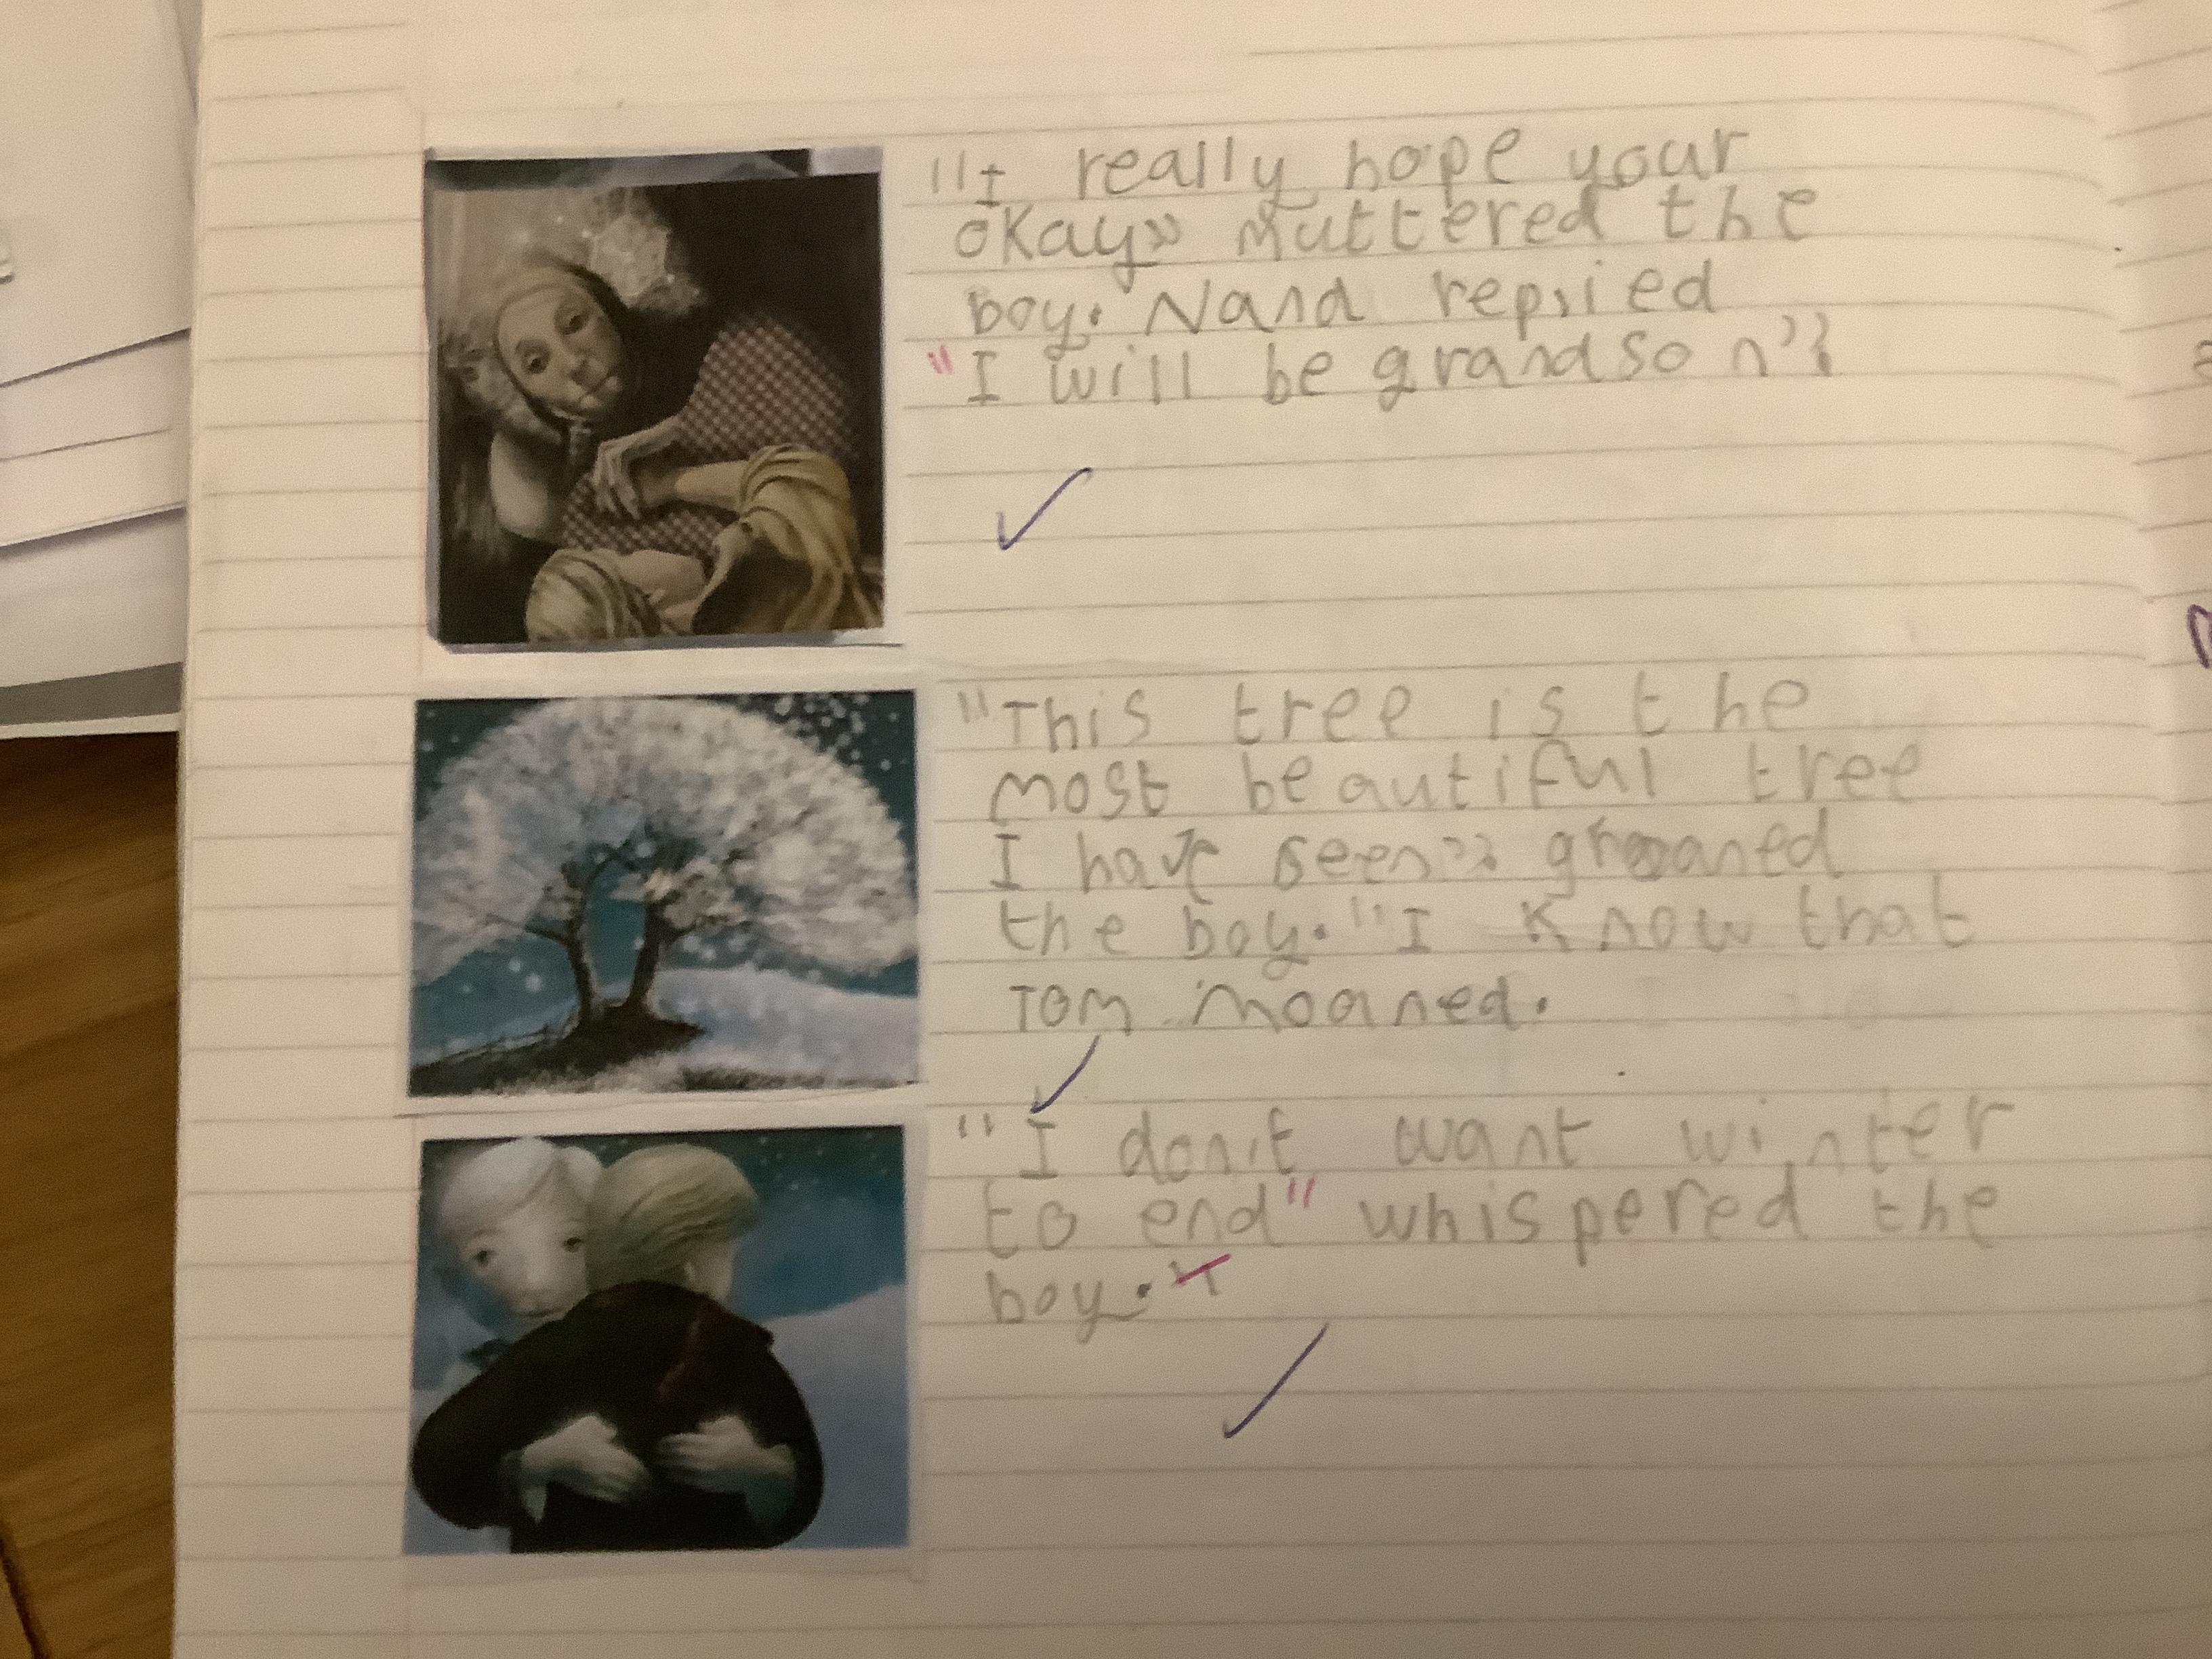 "I really hope your
okay" muttered the
boy. Nand replied
"I will be grandson"
"This tree is the
most beautiful tree
I have seen" groaned
the boy. "I know that
Tom moaned.
"I don't want winter
to end" whispered the
boy.